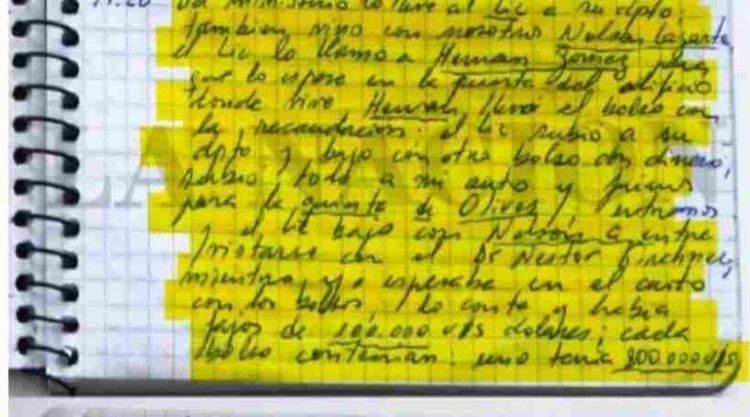 del ministerio lo llevé al Lic a su dpto.
tambien vino con nosotros Nelson Lazarte
el Lic lo llamo a Hernan Gomez para
que lo espere en la puerta del edificio
donde vive Hernan, llevó el bolso con
la recaudacion. el Lic subio a su
dpto y bajo con otro bolso con dinero,
subio todo a mi auto y fuimos
para la quinta de Olivos, entramos
y el Lic bajo con Nelson a entre
vistarse con el Dr Nestor Kirchner,
mientras yo esperaba en el auto
con los bolsos, lo conte y habia
fajos de 100.000 U$s dolares; cada
bolso contenian: uno tenia 800.000 U$s
LA NACION